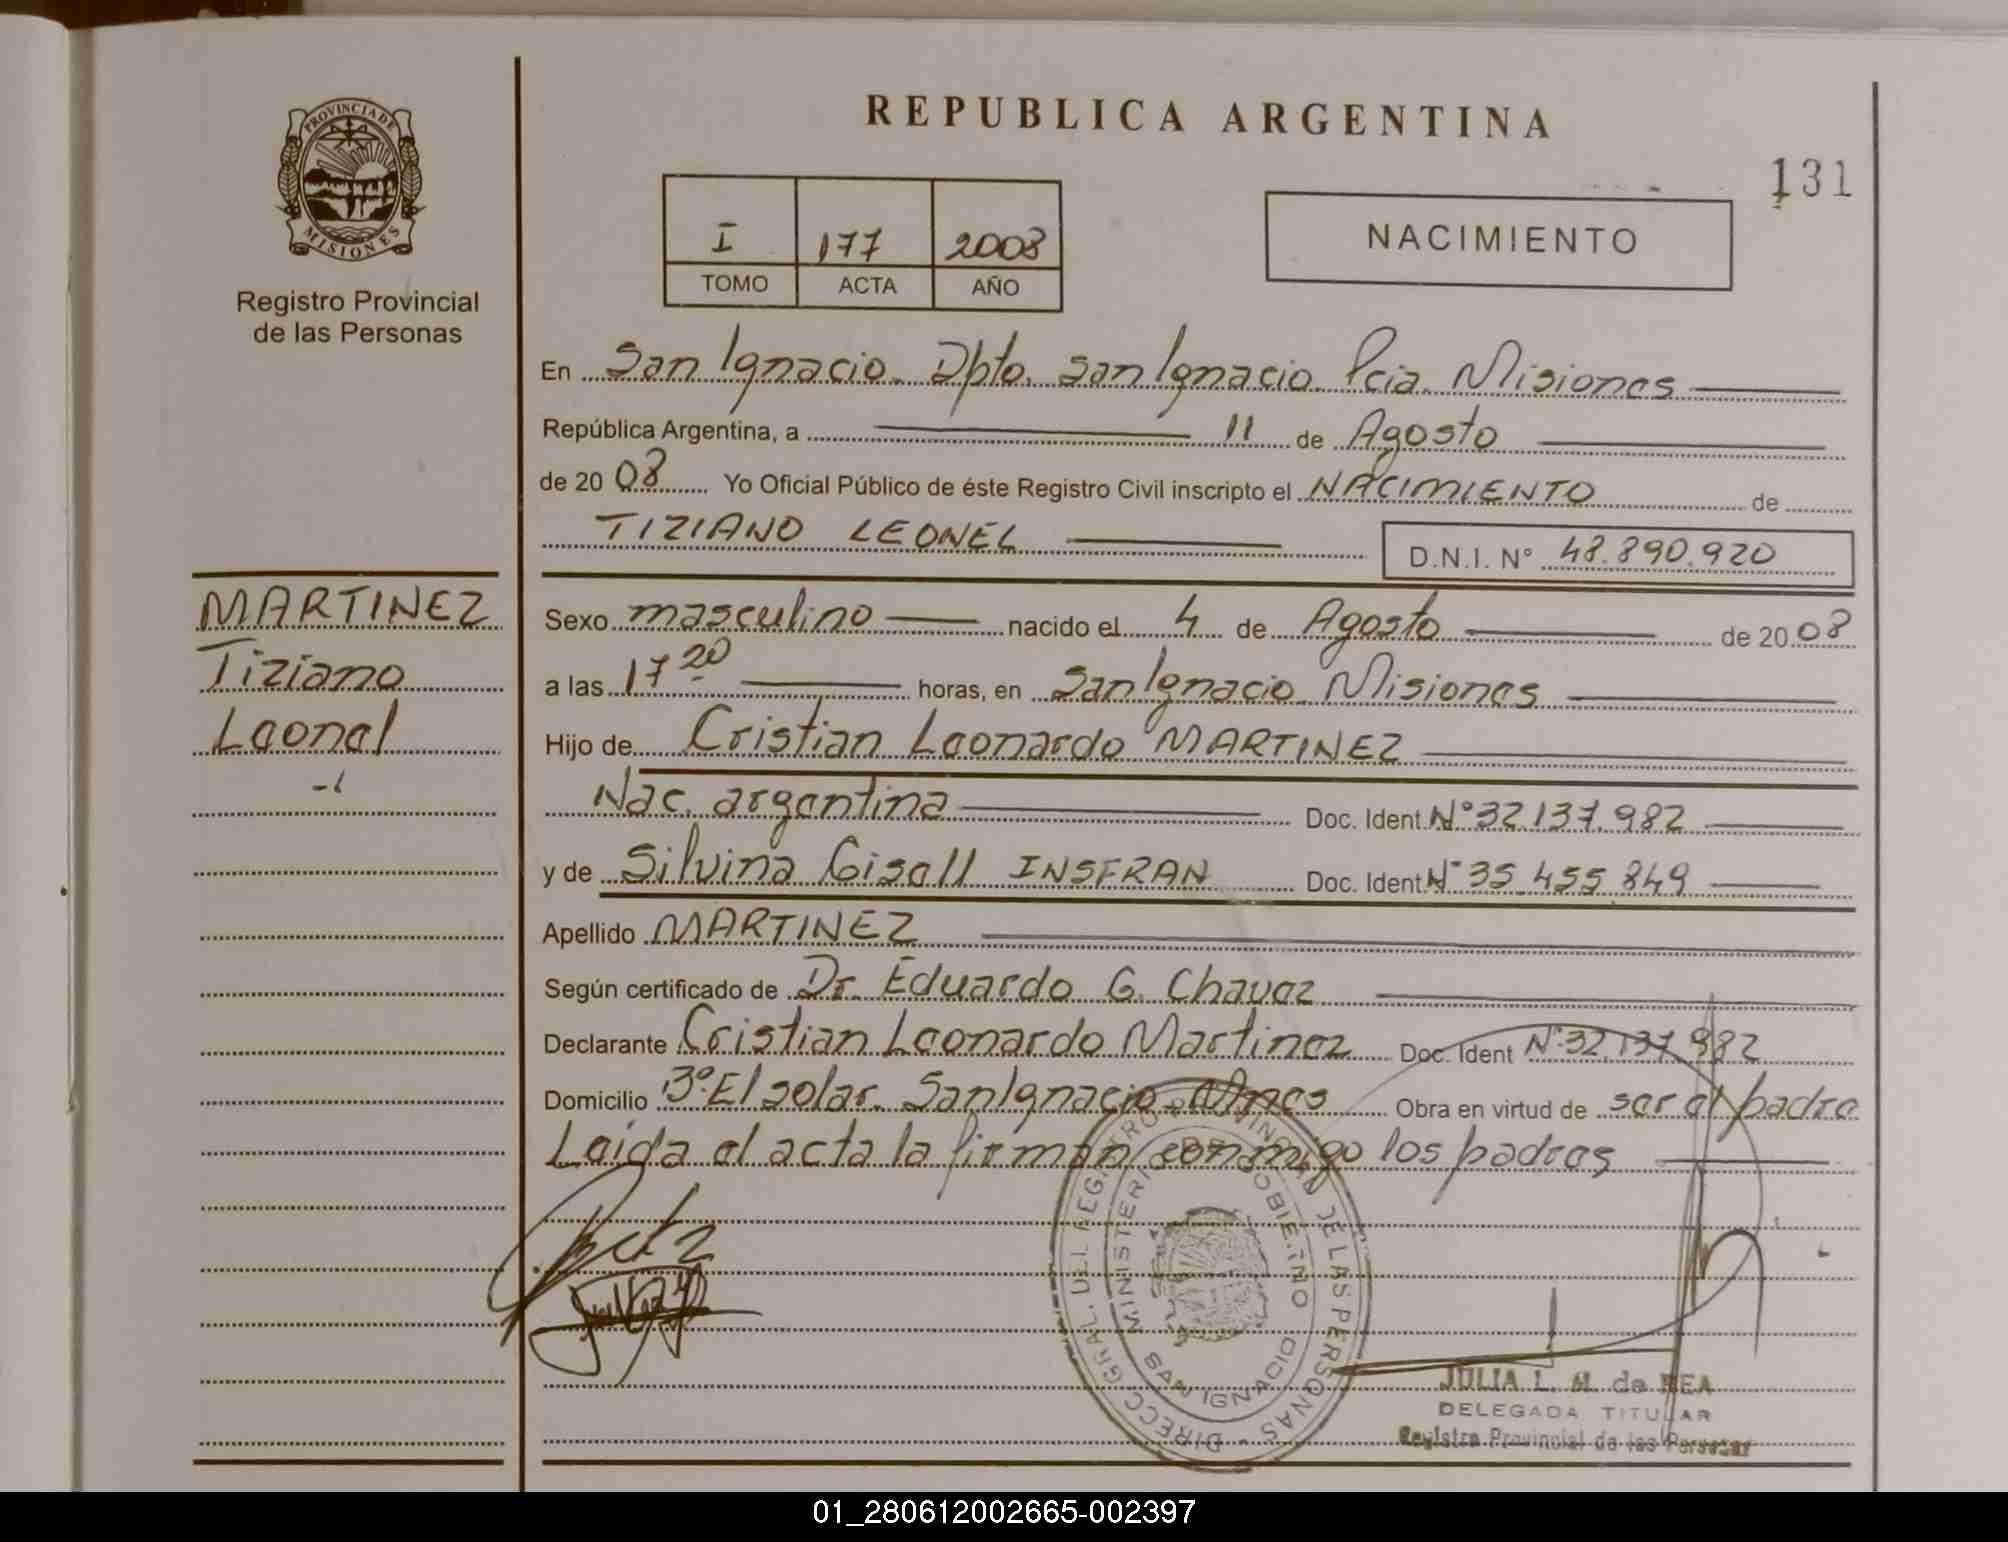 REPUBLICA ARGENTINA
131
PROVINCIA DE
MISIONES
Registro Provincial
de las Personas
I 177 2008
TOMO ACTA AÑO
NACIMIENTO
En San Ignacio. Dpto. San Ignacio. Pcia. Misiones
República Argentina, a 11 de Agosto
de 20 08 Yo Oficial Público de éste Registro Civil inscripto el NACIMIENTO de
TIZIANO LEONEL
D.N.I. N° 48.890.920
MARTINEZ
Tiziano
Leonel
Sexo masculino nacido el 4 de Agosto de 20 08
a las 17 20 horas, en San Ignacio. Misiones
Hijo de Cristian Leonardo MARTINEZ
Nac. argentina Doc. Ident. N° 32.137.982
y de Silvina Gisell INSFRAN Doc. Ident N° 35.455.849
Apellido MARTINEZ
Según certificado de Dr. Eduardo G. Chavez
Declarante Cristian Leonardo Martinez Doc. Ident N° 32.137.982
Domicilio B° El solar. San Ignacio. Mnes Obra en virtud de ser el padre
Leida el acta la firman conmigo los padres
DIRECC GRAL. DEL REGISTRO PROVINCIAL DE LAS PERSONAS
MINISTERIO DE GOBIERNO
SAN IGNACIO
JULIA L. M. de REA
DELEGADA TITULAR
Registro Provincial de las Personas
01_280612002665-002397